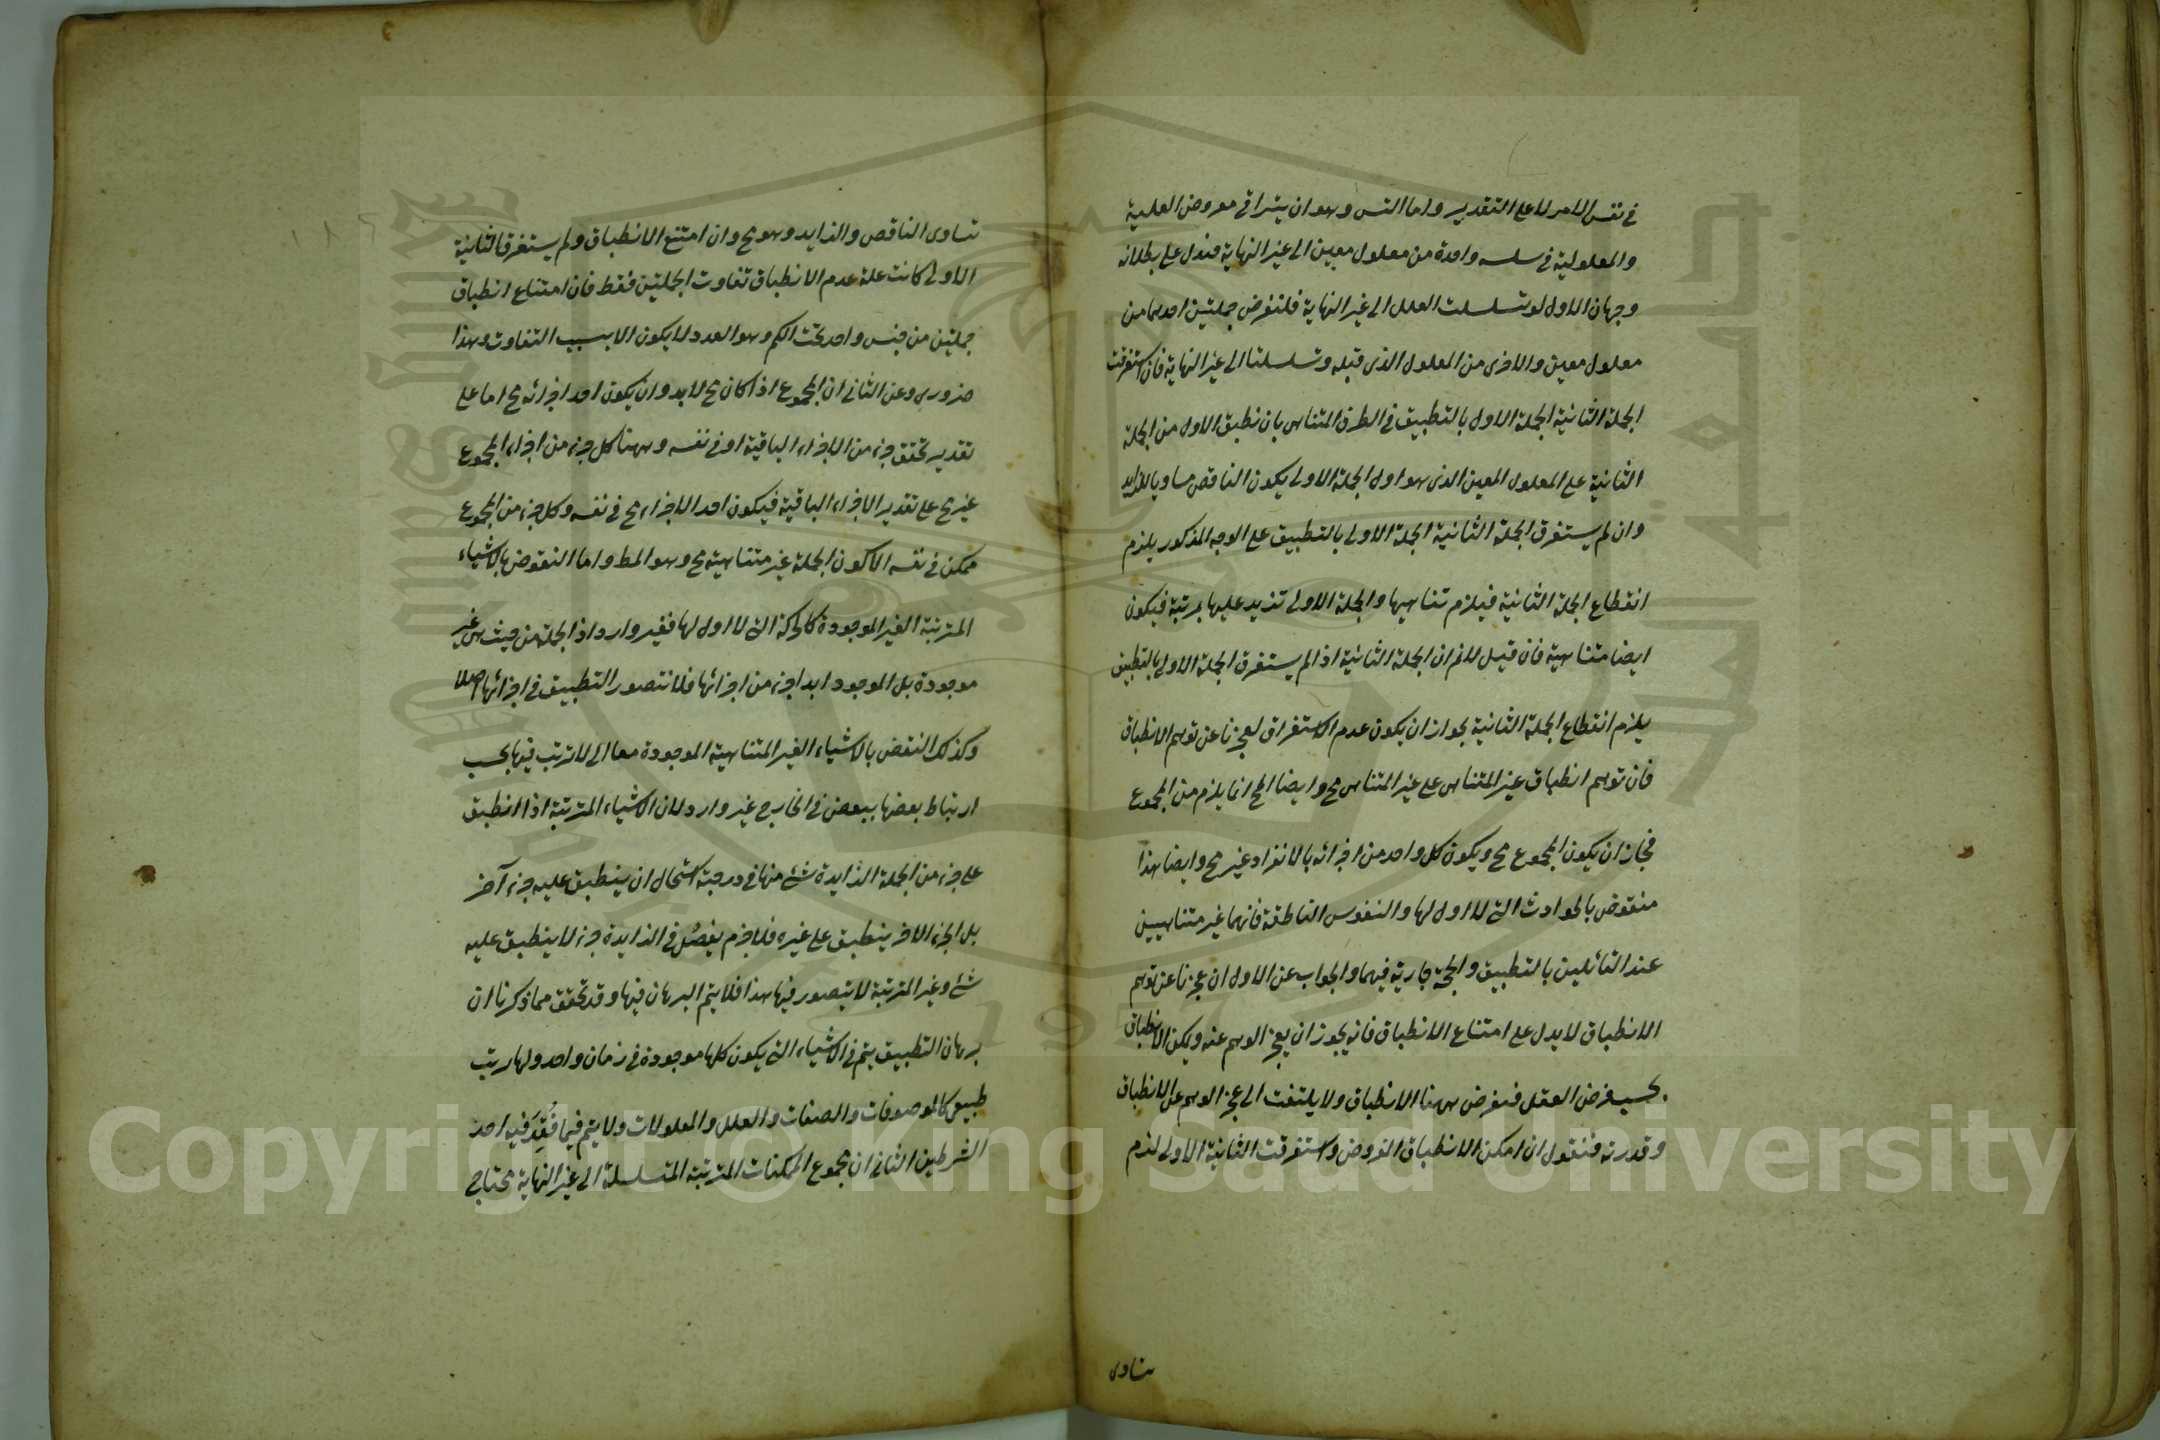 في نفس الامر لا على التقدير واما التس وهو ان يتراقى معروض العلية
والمعلولية في سلسه واحدة من معلول معين الى غير النهاية فيدل على بطلانه
وجهان الاول لو تسلسلت العلل الى غير النهاية فلنفرض جملتين احديهما من
معلول معين والاخرى من المعلول الذى قبله وتسلسلتا الى غير النهاية فان استغرقت
الجملة الثانية الجملة الاولى بالتطبيق في الطرف المتناهى بان نطبق الاول من الجملة
الثانية على المعلول المعين الذى هو اول الجملة الاولى يكون الناقص مساويا للزايد
وان لم يستغرق الجملة الثانية الجملة الاولى بالتطبيق على الوجه المذكور يلزم
انقطاع الجملة الثانية فيلزم تناهيها والجملة الاولى تزيد عليها بمرتبة فيكون
ايضا متناهية فان قيل لانم ان الجملة الثانية اذا لم يستغرق الجملة الاولى بالتطبيق
يلزم انقطاع الجملة الثانية لجواز ان يكون عدم الاستغراق لعجزنا عن توهم الانطباق
فان توهم انطباق غير المتناهى على غير المتناهى مح وايضا المح انما يلزم من المجموع
فجاز ان يكون المجموع مح ويكون كل واحد من اجزائه بالانفراد غير مح وايضا هذا
منقوض بالحوادث التى لا اول لها والنفوس الناطقة فانهما غير متناهيين
عند القائلين بالتطبيق والحجة جارية فيهما والجواب عن الاول ان عجزنا عن توهم
الانطباق لا يدل على امتناع الانطباق فانه يجوز ان يعجز الوهم عنه ويمكن الانطباق
بحسب فرض العقل فنفرض ههنا الانطباق ولا يلتفت الى عجز الوهم عن الانطباق
وقدرته فنقول ان امكن الانطباق الفروض واستغرقت الثانية الاولى لزم
تساوى
تساوى الناقص والزايد وهو مح وان امتنع الانطباق ولم يستغرق الثانية
الاولى كانت علة عدم الانطباق تفاوت الجملتين فقط فان امتناع انطباق
جملتين من جنس واحد تحت الكم وهو العدد لا يكون الا بسبب التفاوت وهذا
ضرورى وعن الثانى ان المجموع اذا كان مح لا بد وان يكون احد اجزائه مح اما على
تقدير تحقق جزء من الاجزاء الباقية او فى نفسه وههنا كل جزء من اجزاء المجموع
غير مح على تقدير الاجزاء الباقية فيكون احد الاجزاء مح فى نفسه وكل جزء من المجموع
ممكن فى نفسه الا كون الجملة غير متناهية مح وهو المط واما النقوض بالاشياء
المترتبة الغير الموجودة كالحركة التى لا اول لها فغير وارد اذ الجملة من حيث هى غير
موجودة بل الموجود ابدا جزء من اجزائها فلا نتصور التطبيق فى اجزائها اصلا
وكذلك النقض بالاشياء الغير المتناهية الموجودة معا التى لا ترتب فيها بحسب
ارتباط بعضها ببعض فى الخارج غير وارد لان الاشياء المترتبة اذا انطبق
على جزء من الجملة الزايدة شئ منها فى درجته استحال ان ينطبق عليه جزء آخر
بل الجزء الاخر ينطبق على غيره فلا جرم يفضل فى الزايدة جزء لا ينطبق عليه
شئ وغير المترتبة لا يتصور فيها هذا فلا يتم البرهان فيها وقد تحقق مما ذكرنا ان
برهان التطبيق يتم فى الاشياء التى يكون كلها موجودة فى زمان واحد ولها ترتيب
طبيعى كالموصوفات والصفات والعلل والمعلولات ولا يتم فيما فُقِدَ فيه احد
الشرطين الثانى ان مجموع الممكنات المترتبة المتسلسلة الى غير النهاية محتاج
Copyright © King Saud University